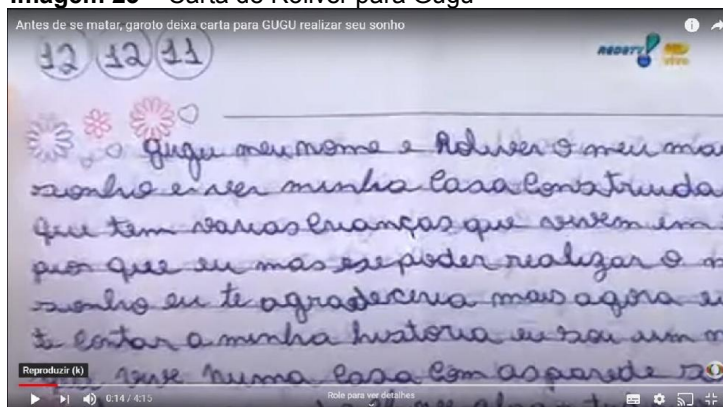 Imagem 25 – Carta de Roliver para Gugu
Antes de se matar, garoto deixa carta para GUGU realizar seu sonho
12 12 11
REDETV HD
vivo
gugu meu nome e Roliver o meu mai
sonho e ver minha casa construida
que tem varias crianças que vivem em
pior que eu mas se poder realizar o m
sonho eu te agradeceria mais agora e
te contar a minha historia eu sou um m
que vive numa casa com as parede
Reproduzir (k)
0:14 / 4:15
Role para ver detalhes